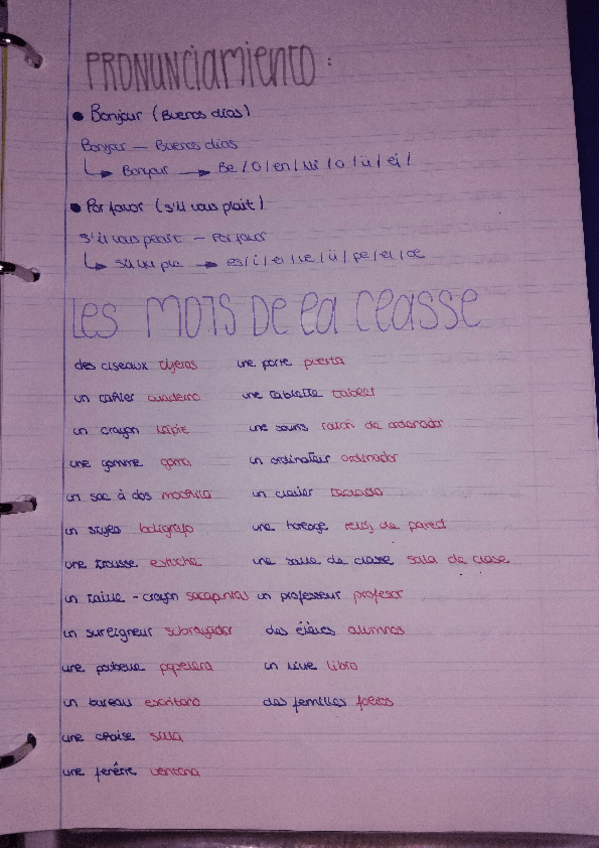 PRONUNCiamiento:
• Bonjour (Buenos días)
Bonjour — Buenos días
Bonjour → Be / O / en /
• Por favor (s'il vous plait)
s'il vous plait — Por favor
LES MOTS DE La Classe
des ciseaux tijeras une porte puerta
un cahier cuaderno une tablette tablet
un crayon lápiz une souris ratón de ordenador
une gomme goma un ordinateur ordenador
un sac à dos mochila un clavier teclado
un stylo bolígrafo une horloge reloj de pared
une trousse estuche une salle de classe sala de clase
un taille-crayon sacapuntas un professeur profesor
un surligneur subrayador des élèves alumnos
une poubelle papelera un livre libro
un bureau escritorio des feuilles folios
une chaise silla
une fenêtre ventana